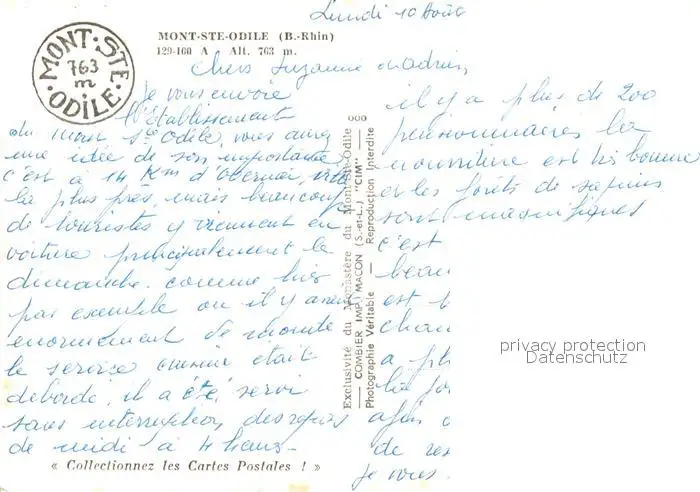 Lundi 10 Août
MONT-STE-ODILE (B.-Rhin)
129-160 A Alt. 763 m.
MONT·STE·ODILE·
763
m
Chers Suzanne Adrien,
Je vous envoie
l'établissement
du Mont Ste Odile, vous aurez
une idée de son importance
c'est à 14 Km d'Obernai, ville
la plus près, mais beaucoup
de touristes y viennent en
voiture principalement le
dimanche. comme hier
par exemple où il y avait
enormément de monde
le service cuisine était
débordé, il a été servi
sans interruption des repas
de midi à 4 heures-
« Collectionnez les Cartes Postales ! »
Exclusivité du Monastère du Mont-Ste-Odile
COMBIER IMP. MACON (S.-et-L.) "CIM"
Photographie Véritable — Reproduction Interdite
il y a plus de 200
pensionnaires la
nourriture est très bonne
et les forêts de sapins
sont magnifiques
c'est
beau
est
chau
a pl
la jo
afin
de res
Je vous
privacy protection
Datenschutz